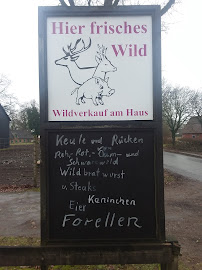 Hier frisches
Wild
Wildverkauf am Haus
Keule und Rücken
Reh-, Rot-, Dam- und
Schwarzwild
Wildbratwurst
u. Steaks
Kaninchen
Eier
Forellen